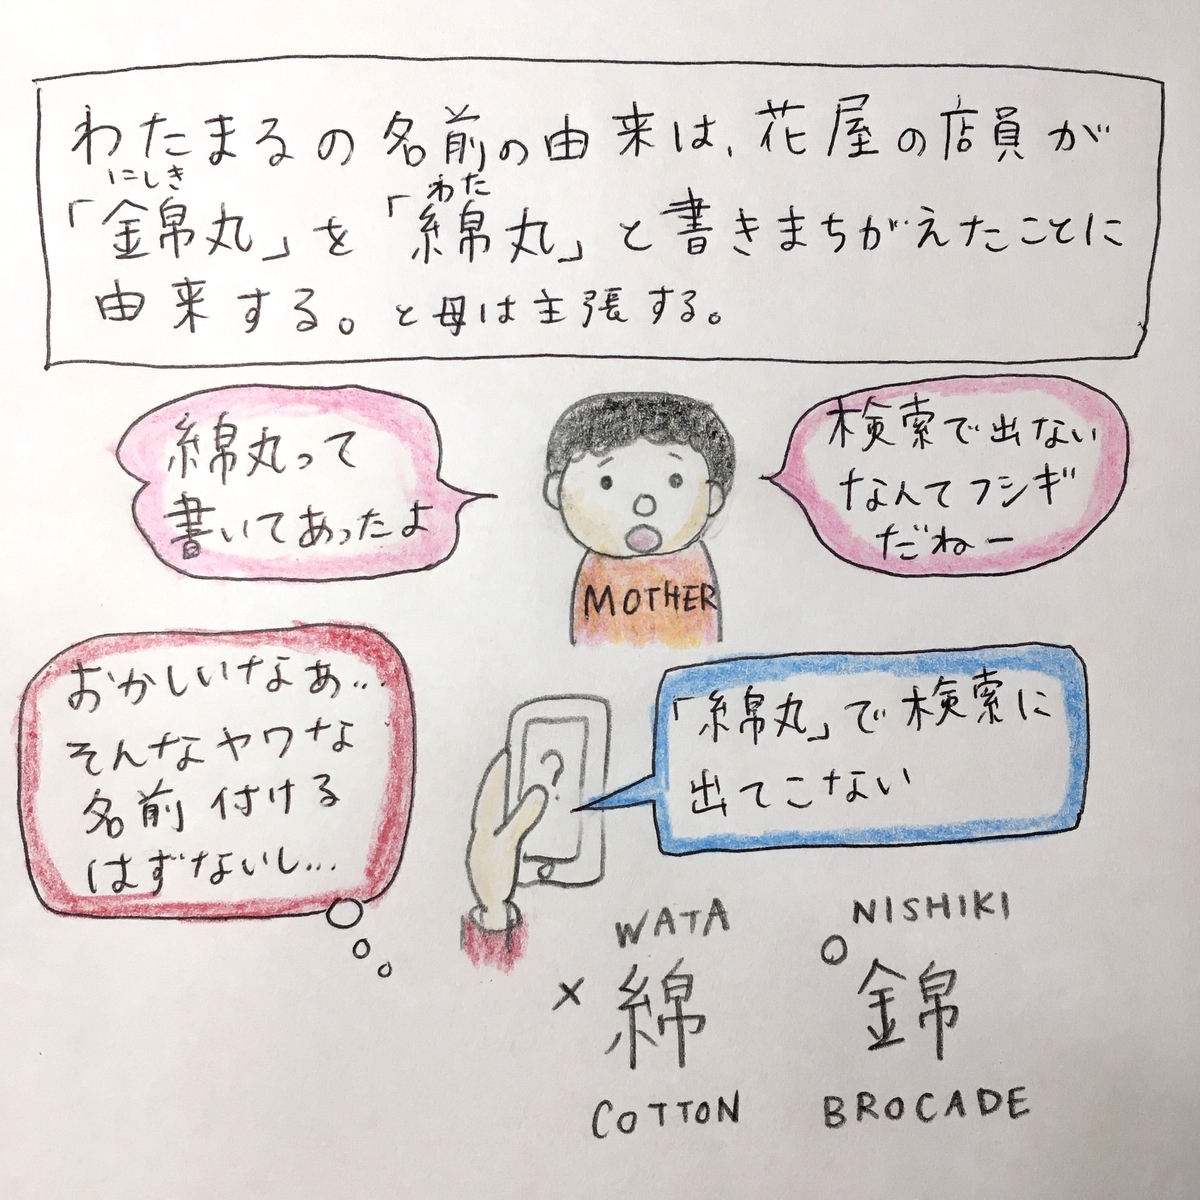 わたまるの名前の由来は、花屋の店員が
にしき わた
「錦丸」を「綿丸」と書きまちがえたことに
由来する。と母は主張する。
綿丸って
書いてあったよ
検索で出ない
なんてフシギ
だねー
MOTHER
おかしいなぁ…
そんなヤワな
名前付ける
はずないし…
?
「綿丸」で検索に
出てこない
WATA
× 綿
COTTON
NISHIKI
○ 錦
BROCADE